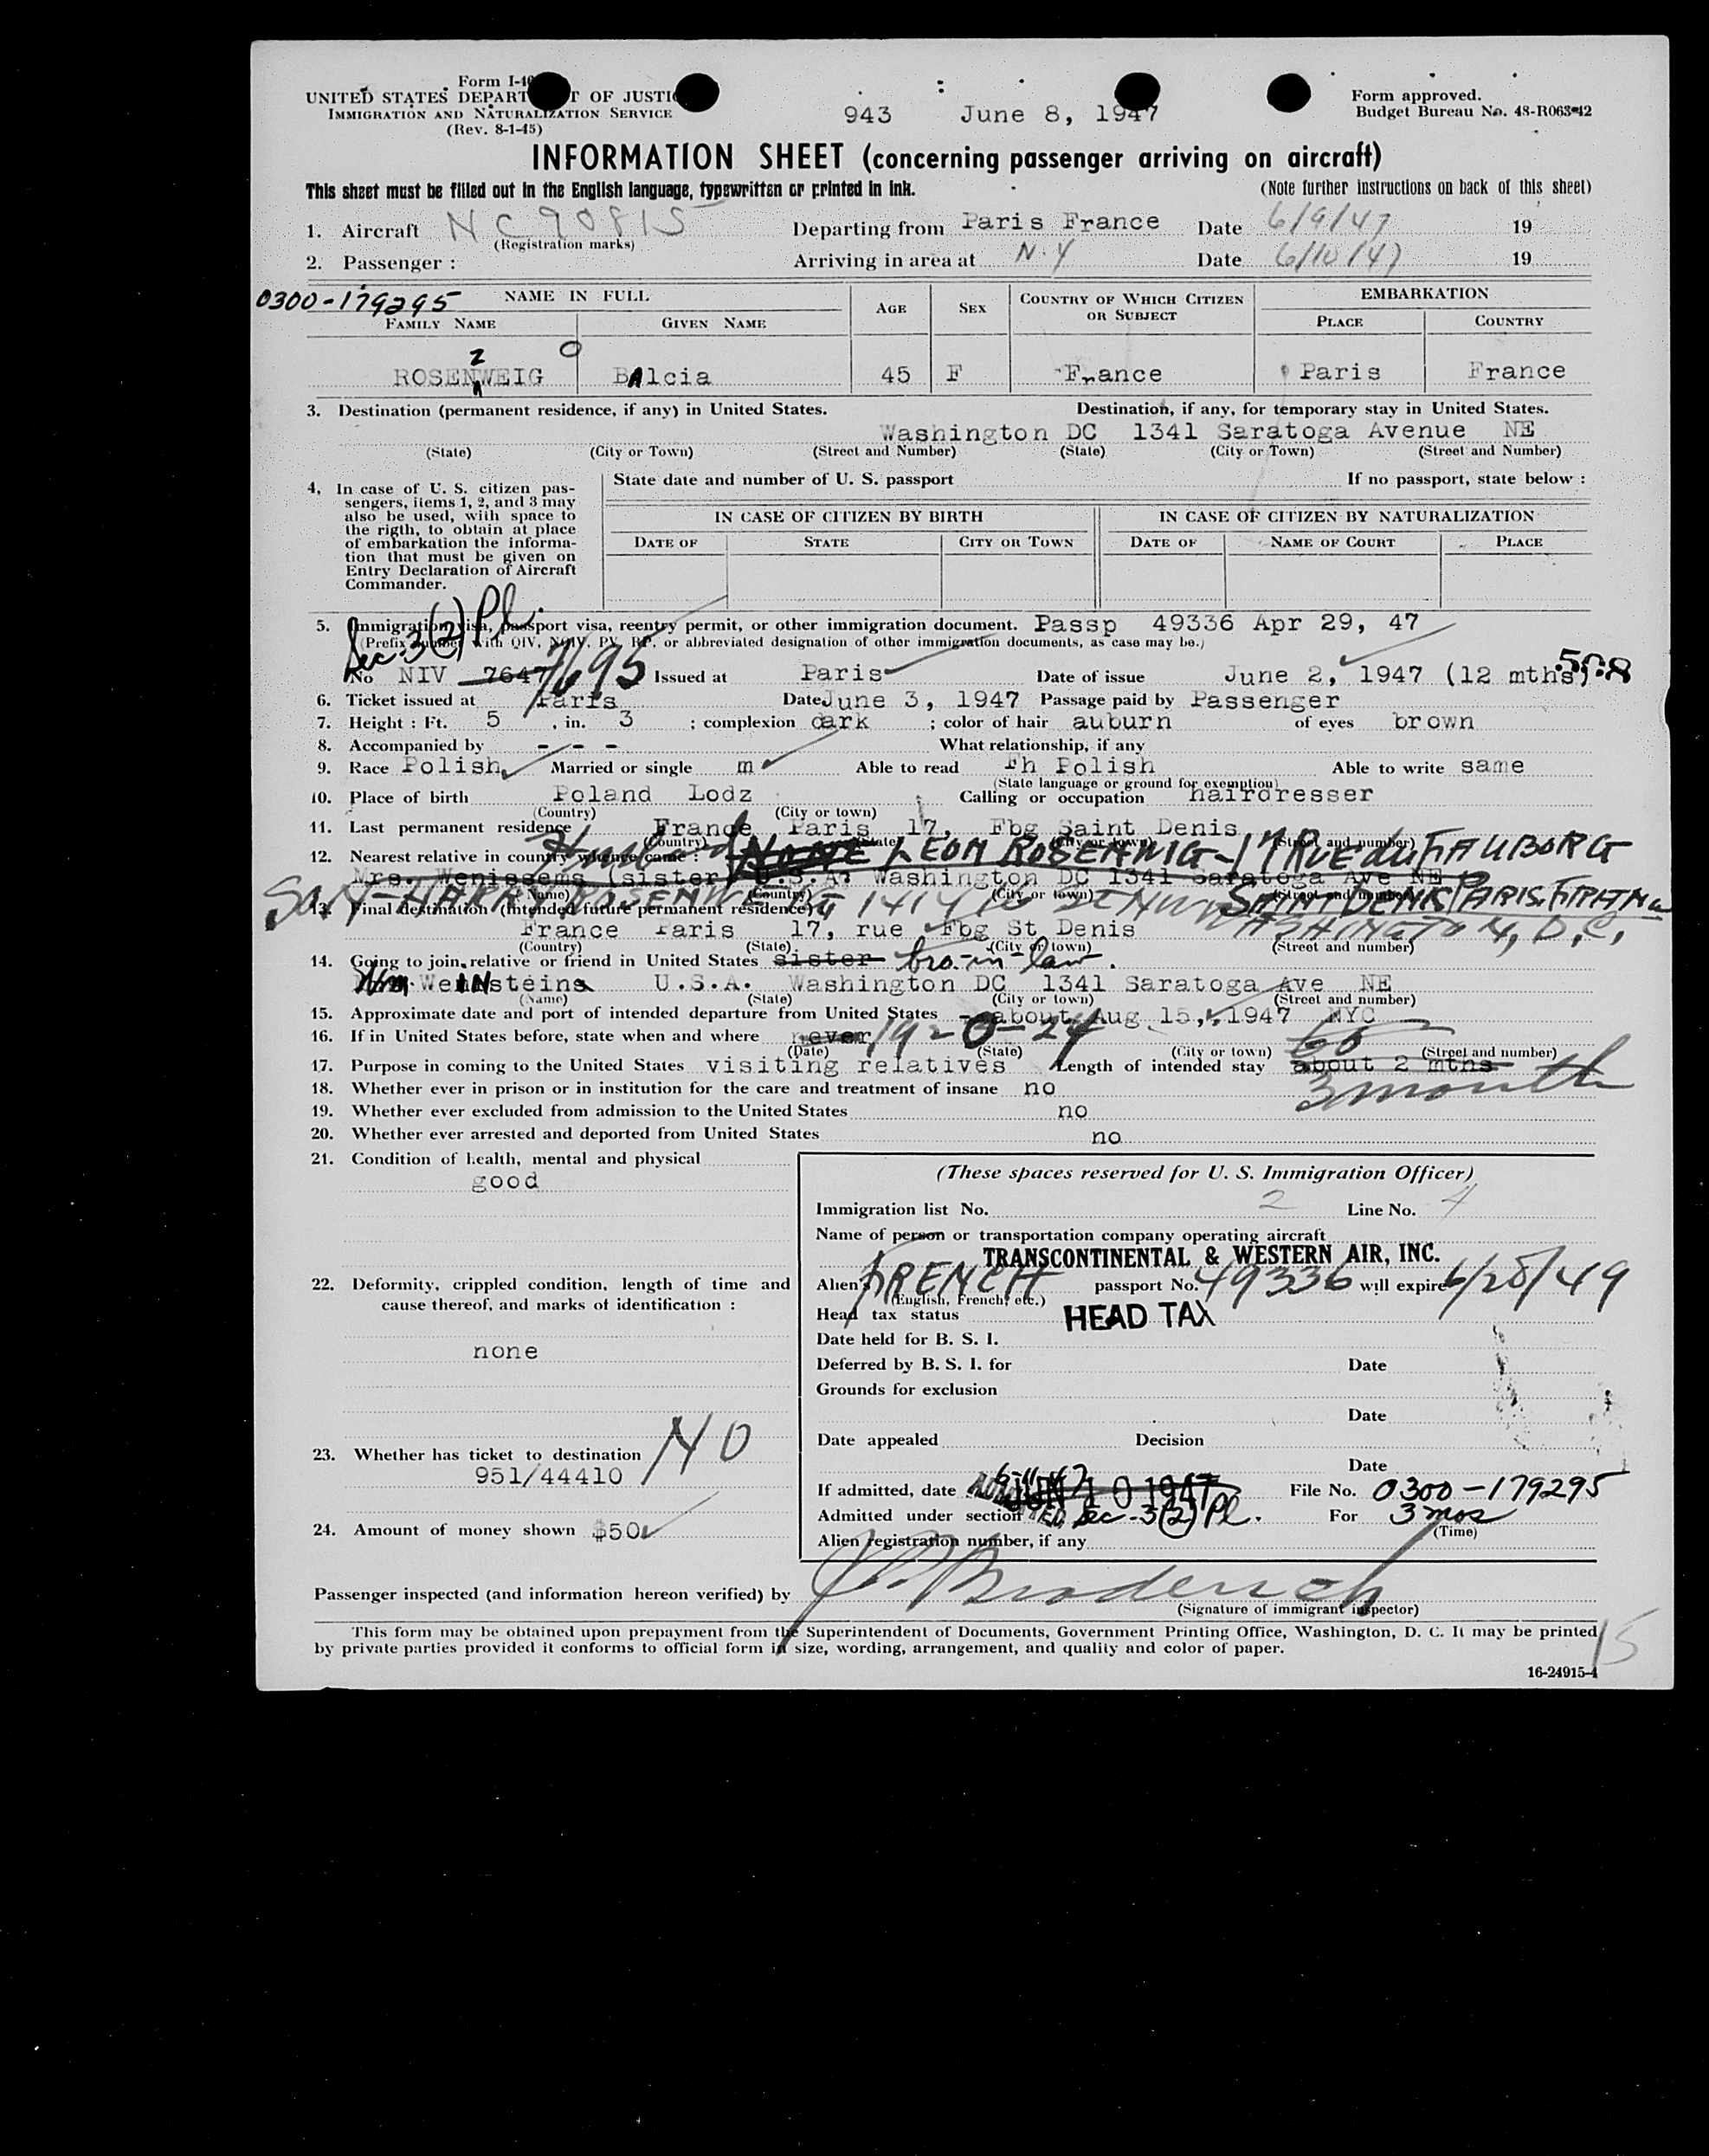 Form I-46
UNITED STATES DEPARTMENT OF JUSTICE
IMMIGRATION AND NATURALIZATION SERVICE
(Rev. 8-1-45)
943 June 8, 1947
Form approved.
Budget Bureau No. 48-R063-42
INFORMATION SHEET (concerning passenger arriving on aircraft)
This sheet must be filled out in the English language, typewritten or printed in ink.
(Note further instructions on back of this sheet)
1. Aircraft NC90815 Departing from Paris France Date 6/9/47 19
(Registration marks)
2. Passenger : Arriving in area at N.Y Date 6/10/47 19
0300-179295 NAME IN FULL AGE SEX COUNTRY OF WHICH CITIZEN OR SUBJECT EMBARKATION
FAMILY NAME GIVEN NAME PLACE COUNTRY
Z O
ROSENWEIG BAlcia 45 F France Paris France
3. Destination (permanent residence, if any) in United States. Destination, if any, for temporary stay in United States.
Washington DC 1341 Saratoga Avenue NE
(State) (City or Town) (Street and Number) (State) (City or Town) (Street and Number)
4. In case of U. S. citizen pas-
sengers, items 1, 2, and 3 may
also be used, with space to
the rigth, to obtain at place
of embarkation the informa-
tion that must be given on
Entry Declaration of Aircraft
Commander.
State date and number of U. S. passport If no passport, state below :
IN CASE OF CITIZEN BY BIRTH IN CASE OF CITIZEN BY NATURALIZATION
DATE OF STATE CITY OR TOWN DATE OF NAME OF COURT PLACE
Sec-3(2) Pl.
5. Immigration visa, passport visa, reentry permit, or other immigration document. Passp 49336 Apr 29, 47
(Prefix number with QIV, NQIV, PV, RP, or abbreviated designation of other immigration documents, as case may be.)
No NIV 7647 7695 Issued at Paris Date of issue June 2, 1947 (12 mths) 508
6. Ticket issued at Paris Date June 3, 1947 Passage paid by Passenger
7. Height : Ft. 5 , in. 3 ; complexion dark ; color of hair auburn of eyes brown
8. Accompanied by - - - What relationship, if any
9. Race Polish Married or single m Able to read Fh Polish Able to write same
(State language or ground for exemption)
10. Place of birth Poland Lodz Calling or occupation hairdresser
(Country) (City or town)
11. Last permanent residence France Paris 17, Fbg Saint Denis
(Country) (State) (City or town) (Street and number)
12. Nearest relative in country whence came : Husband NONE LEON ROSENWIG-17 RUE du FAUBORG
Mrs. Wenissems (sister) U.S.A. Washington DC 1341 Saratoga Ave NE
SAINT DENIS PARIS. FRANCE
(Name) (Country) (City or town) (Street and number)
SON-HARRY ROSENWEIG 1414 NW WASHINGTON, D.C.
13. Final destination (intended future permanent residence)
France Paris 17, rue Fbg St Denis
(Country) (State) (City or town) (Street and number)
14. Going to join relative or friend in United States sister bro-in-law.
Wm. Weinsteins U.S.A. Washington DC 1341 Saratoga Ave NE
(Name) (State) (City or town) (Street and number)
15. Approximate date and port of intended departure from United States about Aug 15, 1947 NYC
16. If in United States before, state when and where never 1920-24
(Date) (State) (City or town) (Street and number)
60
17. Purpose in coming to the United States visiting relatives Length of intended stay about 2 mths
3 month
18. Whether ever in prison or in institution for the care and treatment of insane no
19. Whether ever excluded from admission to the United States no
20. Whether ever arrested and deported from United States no
21. Condition of health, mental and physical
good
22. Deformity, crippled condition, length of time and
cause thereof, and marks of identification :
none
23. Whether has ticket to destination NO
951/44410
24. Amount of money shown $50
(These spaces reserved for U. S. Immigration Officer)
Immigration list No. 2 Line No. 4
Name of person or transportation company operating aircraft
TRANSCONTINENTAL & WESTERN AIR, INC.
Alien's FRENCH passport No. 49336 will expire 6/28/49
(English, French, etc.)
Head tax status HEAD TAX
Date held for B. S. I.
Deferred by B. S. I. for Date
Grounds for exclusion
Date
Date appealed Decision
Date
6-11-47
If admitted, date ADMITTED JUN 10 1947 File No. 0300-179295
Admitted under section Sec-3(2) Pl. For 3 mos
(Time)
Alien registration number, if any
Passenger inspected (and information hereon verified) by Broderick
(Signature of immigrant inspector)
This form may be obtained upon prepayment from the Superintendent of Documents, Government Printing Office, Washington, D. C. It may be printed
by private parties provided it conforms to official form in size, wording, arrangement, and quality and color of paper.
15
16-24915-4